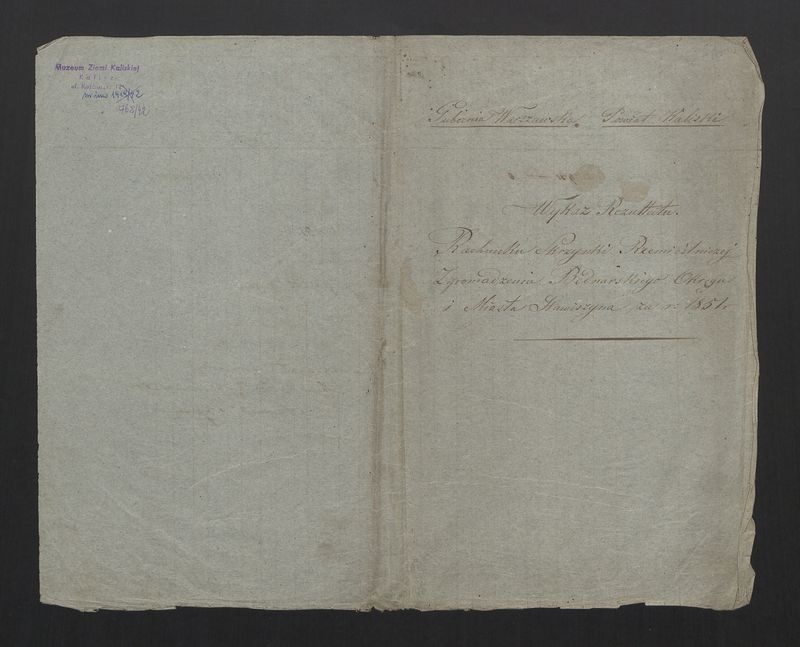 Muzeum Ziemi Kaliskiej
Kalisz
ul. Kościuszki 12
468/92
Gubernia Warszawska. Powiat Kaliski
Wykaz Rezultatu.
Rachunku Skrzynki Rzemieślniczej
Zgromadzenia Bednarskiego Okręgu
i Miasta Stawiszyna, za r. 1851.